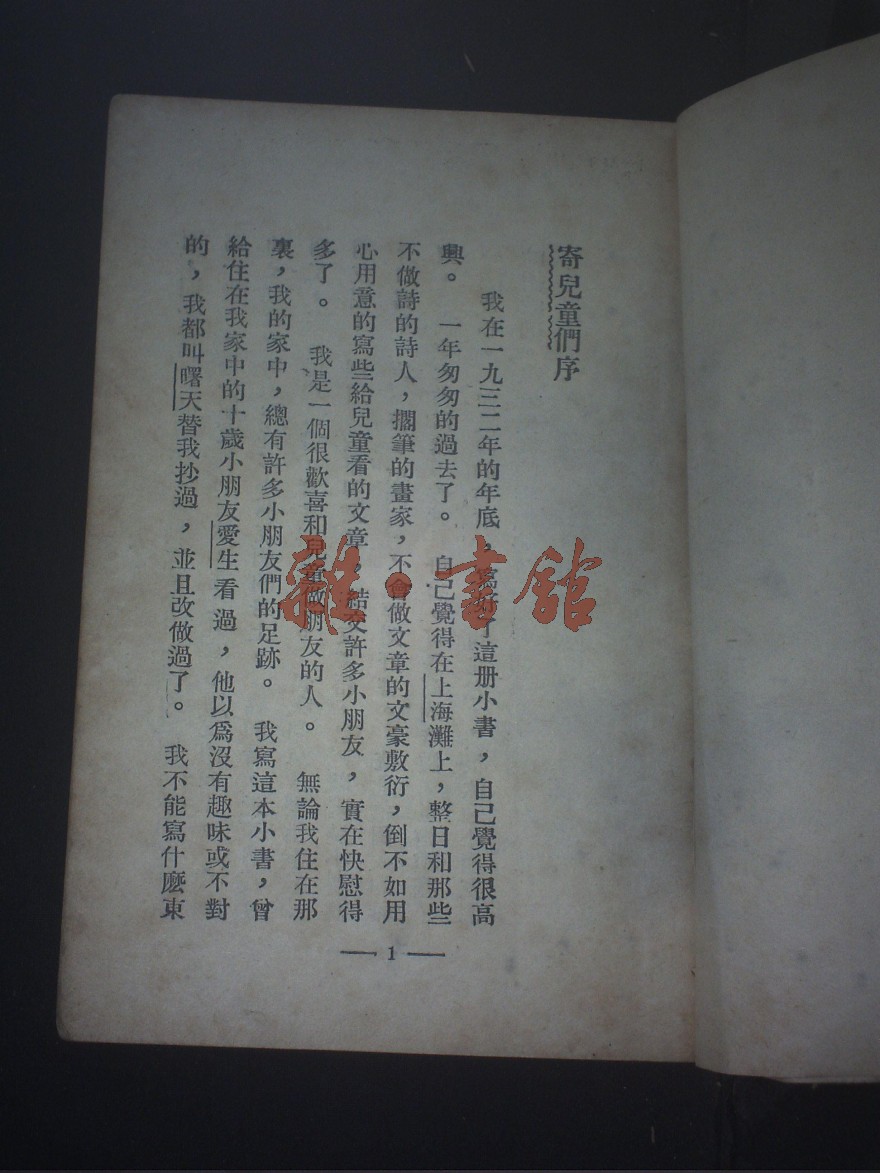 寄兒童們序
我在一九三二年的年底，寫好了這册小書，自己覺得很高
興。　一年匆匆的過去了。　自己覺得在上海灘上，整日和那些
不做詩的詩人，擱筆的畫家，不會做文章的文豪敷衍，倒不如用
心用意的寫些給兒童看的文章，結交許多小朋友，實在快慰得
多了。　我是一個很歡喜和兒童做朋友的人。　無論我住在那
裏，我的家中，總有許多小朋友們的足跡。　我寫這本小書，曾
給住在我家中的十歲小朋友愛生看過，他以爲沒有趣味或不對
的，我都叫曙天替我抄過，並且改做過了。　我不能寫什麽東
— 1 —
雜·書館